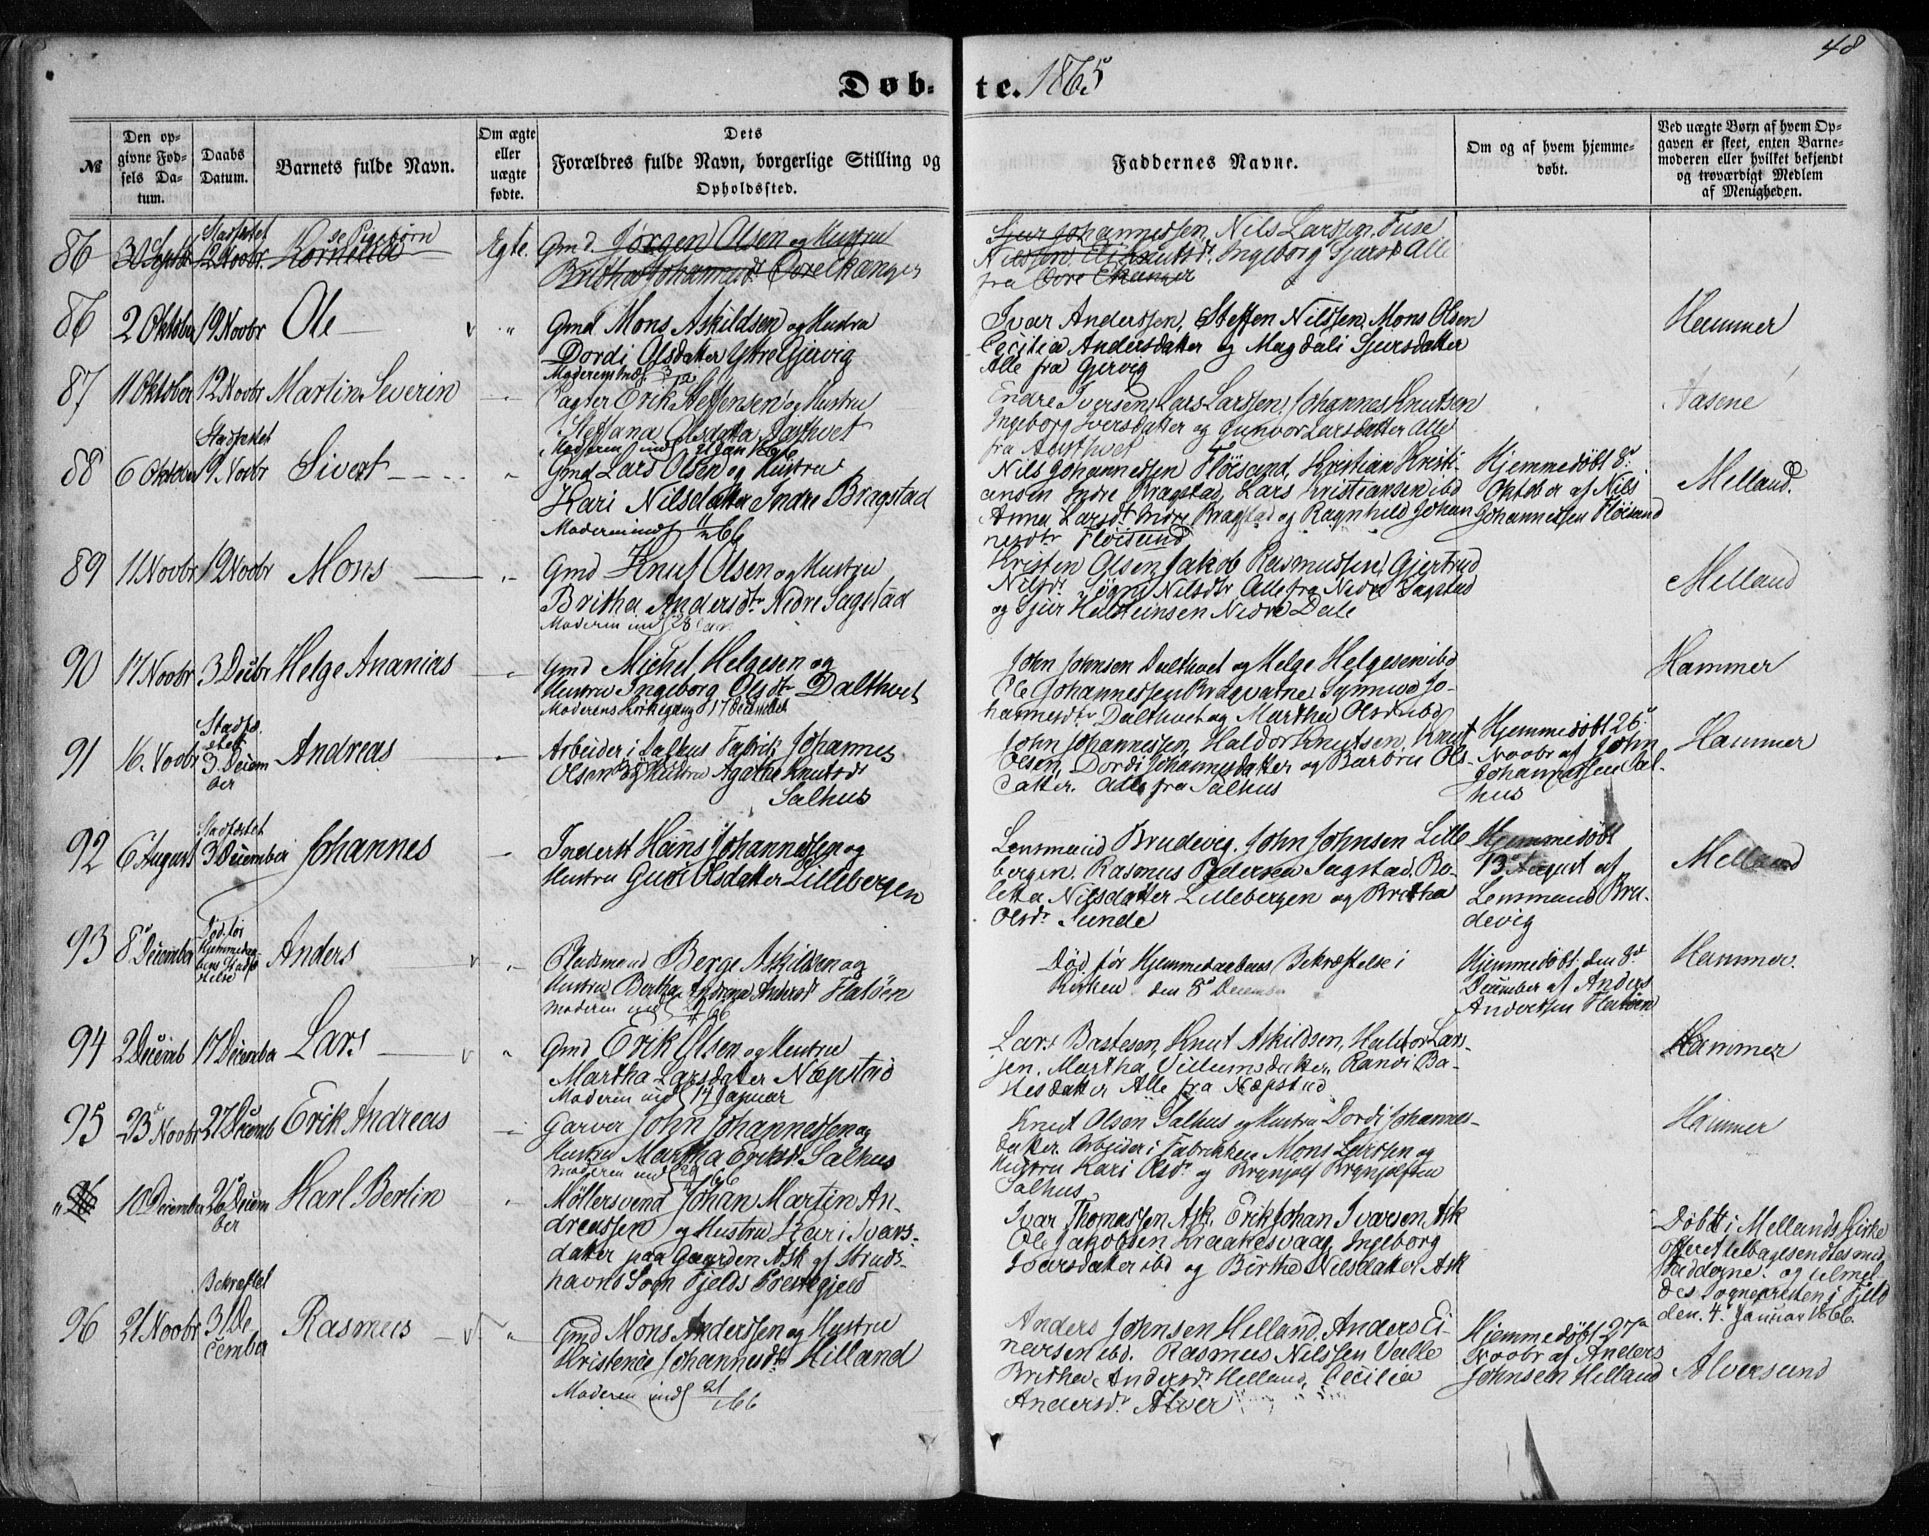 48
Døb-te. 1865
№
Den op-
givne Fød-
sels Da-
tum.
Daabs
Datum.
Barnets fulde Navn.
Om ægte
eller
uægte
fødte.
Dets
Forældres fulde Navn, borgerlige Stilling og
Opholdssted.
Faddernes Navne.
Om og af hvem hjemme-
døbt.
Ved uægte Børn af hvem Op-
gaven er skeet, enten Barne-
moderen eller hvilket bekjendt
og troværdigt Medlem
af Menigheden.
86 Stadfæstet 12 Novbr. Kornelia se Pigebørn Ægte.
Gmd. Jørgen Olsen og Hustru
Britha Johannesdt Øvre Ekanger
Sjur Johannessen, Nils Larssen, Fuse
Nilssen, Ingeborg Sjursdt Alle
fra Øvre Ekanger
86 2 Oktober 19 Novbr Ole "
Gmd. Mons Askildsen og Hustru
Dordi Olsdatter Ytre Gjervig
Ivar Anderssen, Steffen Nilssen, Mons Olsen
Cecilia Andersdatter og Magdali Sjursdatter
Alle fra Gjervig
Hammer
87 11 Oktober 12 Novbr Martin Severin
Erik Steffensen og Hustru
Steffana Olsdatter
Endre Iversen, Lars Larssen, Johannes Knutsen
Ingeborg Iversdatter og Gunvor Larsdatter Alle
fra
Aasene
88 6 Oktober Stadfæstet 19 Novbr Sivert "
Gmd Lars Olsen og Hustru
Kari Nilsdatter Indre Bragstad
Moderen indl
Nils Johannessen Fløisand, Kristian Kristi-
ansen Indre Bragstad, Lars Kristiansen ibd
Anna Larsdt Indre Bragstad og Ragnhild Johan
nesdtr Fløisand
Hjemmedøbt 8de
Oktober af Nils
Johannessen Fløisand
Melland.
89 11 Novbr 19 Novbr Mons
Gmd Knut Olsen og Hustru
Britha Andersdtr Nedre Sagstad
Moderen indl 28
Kristen Olsen, Jakob Rasmussen, Gjertrud
Nilsdtr Søgni Nilsdtr Alle fra Nedre Sagstad
og Sjur Halsteinsen Nedre Dale
Melland
90 17 Novbr 3 Decbr Helge Ananias
Gmd Michel Helgesen og
Hustru Ingeborg Olsdtr Dalthvet
Moderens Kirkegang 17 December
John Johnsen Dalthvet og Helge Helgesen ibd
Ole Johannessen Synneva Jo-
hannesdtr Dalthvet og Martha Olsdtr ibd
Hammer
91 16. Novbr Stadfæ
stet
3 Decem
ber Andreas
Arbeider i Salhus Fabrik Johannes
Olsen og Hustru Agathe Knutsdt
Salhus
John Johannessen, Haldor Knutsen, Knut
Olsen, Dordi Johannesdatter og Barbru Ols-
datter. Alle fra Salhus
Hjemmedøbt 26
Novbr af John
Johannessen Sal-
hus
Hammer
92 6 August Stadfæstet
3 December Johannes
Inderst Hans Johannessen og
Hustru Guri Olsdatter Lillebergen
Lensmand Brudevig, John Johnsen Lille
bergen, Rasmus Pedersen Sagstad, Bo-
letta Nilsdatter Lillebergen og Britha
Olsdtr Sunde
Hjemmedøbt
13 August af
Lensmand Bru-
devig
Melland
93 8de December Død før
Hjemmedaa-
bens Stadfæ-
stelse Anders
Pladsmand Berge Askildsen og
Hustru Bertha Andrea Andersdt Flatøen
Moderen indl
Død før Hjemmedaabens Bekræftelse i
Kirken den 8de December
Hjemmedøbt den 8de
December af Anders
Anderssen Flatøen
Hammer.
94 2 Decemb 17 December Lars "
Gmd Erik Olsen og Hustru
Martha Larsdatter Næpstad
Moderen indl 14 Januar
Lars Bastesen, Knut Askildsen, Haldor Lar-
sen, Martha Villumsdatter, Randi Ba-
stesdatter Alle fra Næpstad
Hammer
95 23 Novbr 27 Decemb Erik Andreas
Garver John Johannessen og
Hustru Martha Eriksdt Salhus
Moderen indl
Knut Olsen Salhus og Hustru Dordi Johannes-
datter. Arbeider i Fabrikken Mons Larssen og
Hustru Kari Olsdtr og Brynjulf Brynjulfsen
Salhus
Hammer
10 December 26 Decem
ber Karl Berlin
Møllersvend Johan Martin An-
dreassen og Hustru Kari Ivars-
datter paa Gaarden Ask af Struds-
havns Sogn Fjelds Præstegjeld
Ivar Thomassen Ask, Erik Johan Ivarsen Ask
Ole Jakobsen Kraakesvaag, Ingeborg
Ivarsdatter ibd og Birthe Nilsdatter Ask
Døbt i Mellands Kirke
tilbagesendtes med
Fadderne og tilmel-
des Sognepresten i Fjeld
den 4. Januar 1866.
96 21 Novbr Bekræftet
31 De
cember Rasmus "
Gmd Mons Anderssen og Hustru
Kristence Johannesdtr Hilland
Moderen indl 21/66
Anders Johnsen Helland, Anders Ei-
narsen ibd. Rasmus Nilssen Valle
Britha Andersdtr Helland, Cecilia
Andersdtr Alver
Hjemmedøbt 27
Novbr af Anders
Johnsen Helland
Alversund